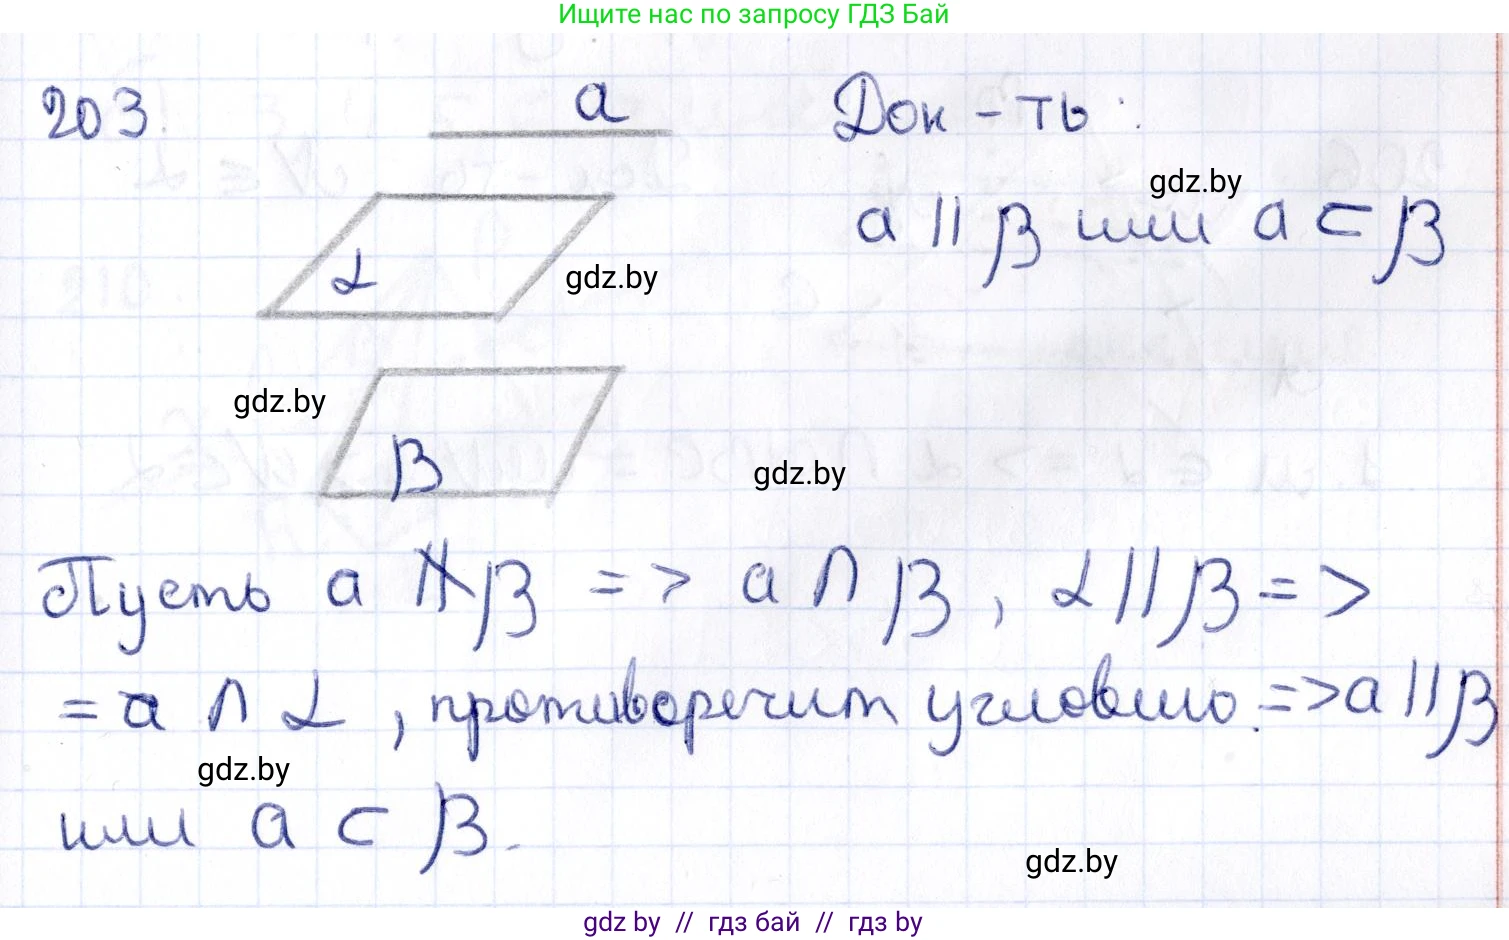 Ищите нас по запросу ГДЗ Бай
203.
a
Док-ть:
gdz.by
a || β или a ⊂ β
α
gdz.by
gdz.by
β
gdz.by
Пусть a ∦ β => a ∩ β, α || β =>
= a ∩ α, противоречит условию. => a || β
gdz.by
или a ⊂ β.
gdz.by
gdz by // гдз бай // гдз by